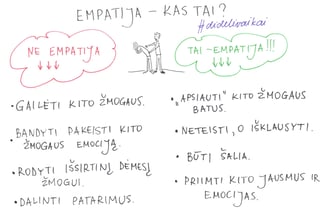 EMPATIJA – KAS TAI?
#didelivaikai
NE EMPATIJA
↓↓↓
• GAILĖTI KITO ŽMOGAUS.
• BANDYTI PAKEISTI KITO
ŽMOGAUS EMOCIJĄ.
• RODYTI IŠSKIRTINĮ DĖMESĮ
ŽMOGUI.
• DALINTI PATARIMUS.
TAI – EMPATIJA!!!
↓↓↓
• „APSIAUTI“ KITO ŽMOGAUS
BATUS.
• NETEISTI, O IŠKLAUSYTI.
• BŪTI ŠALIA.
• PRIIMTI KITO JAUSMUS IR
EMOCIJAS.